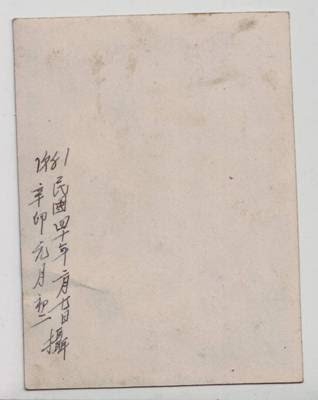 民國四十年二月七日攝
辛卯元月初二